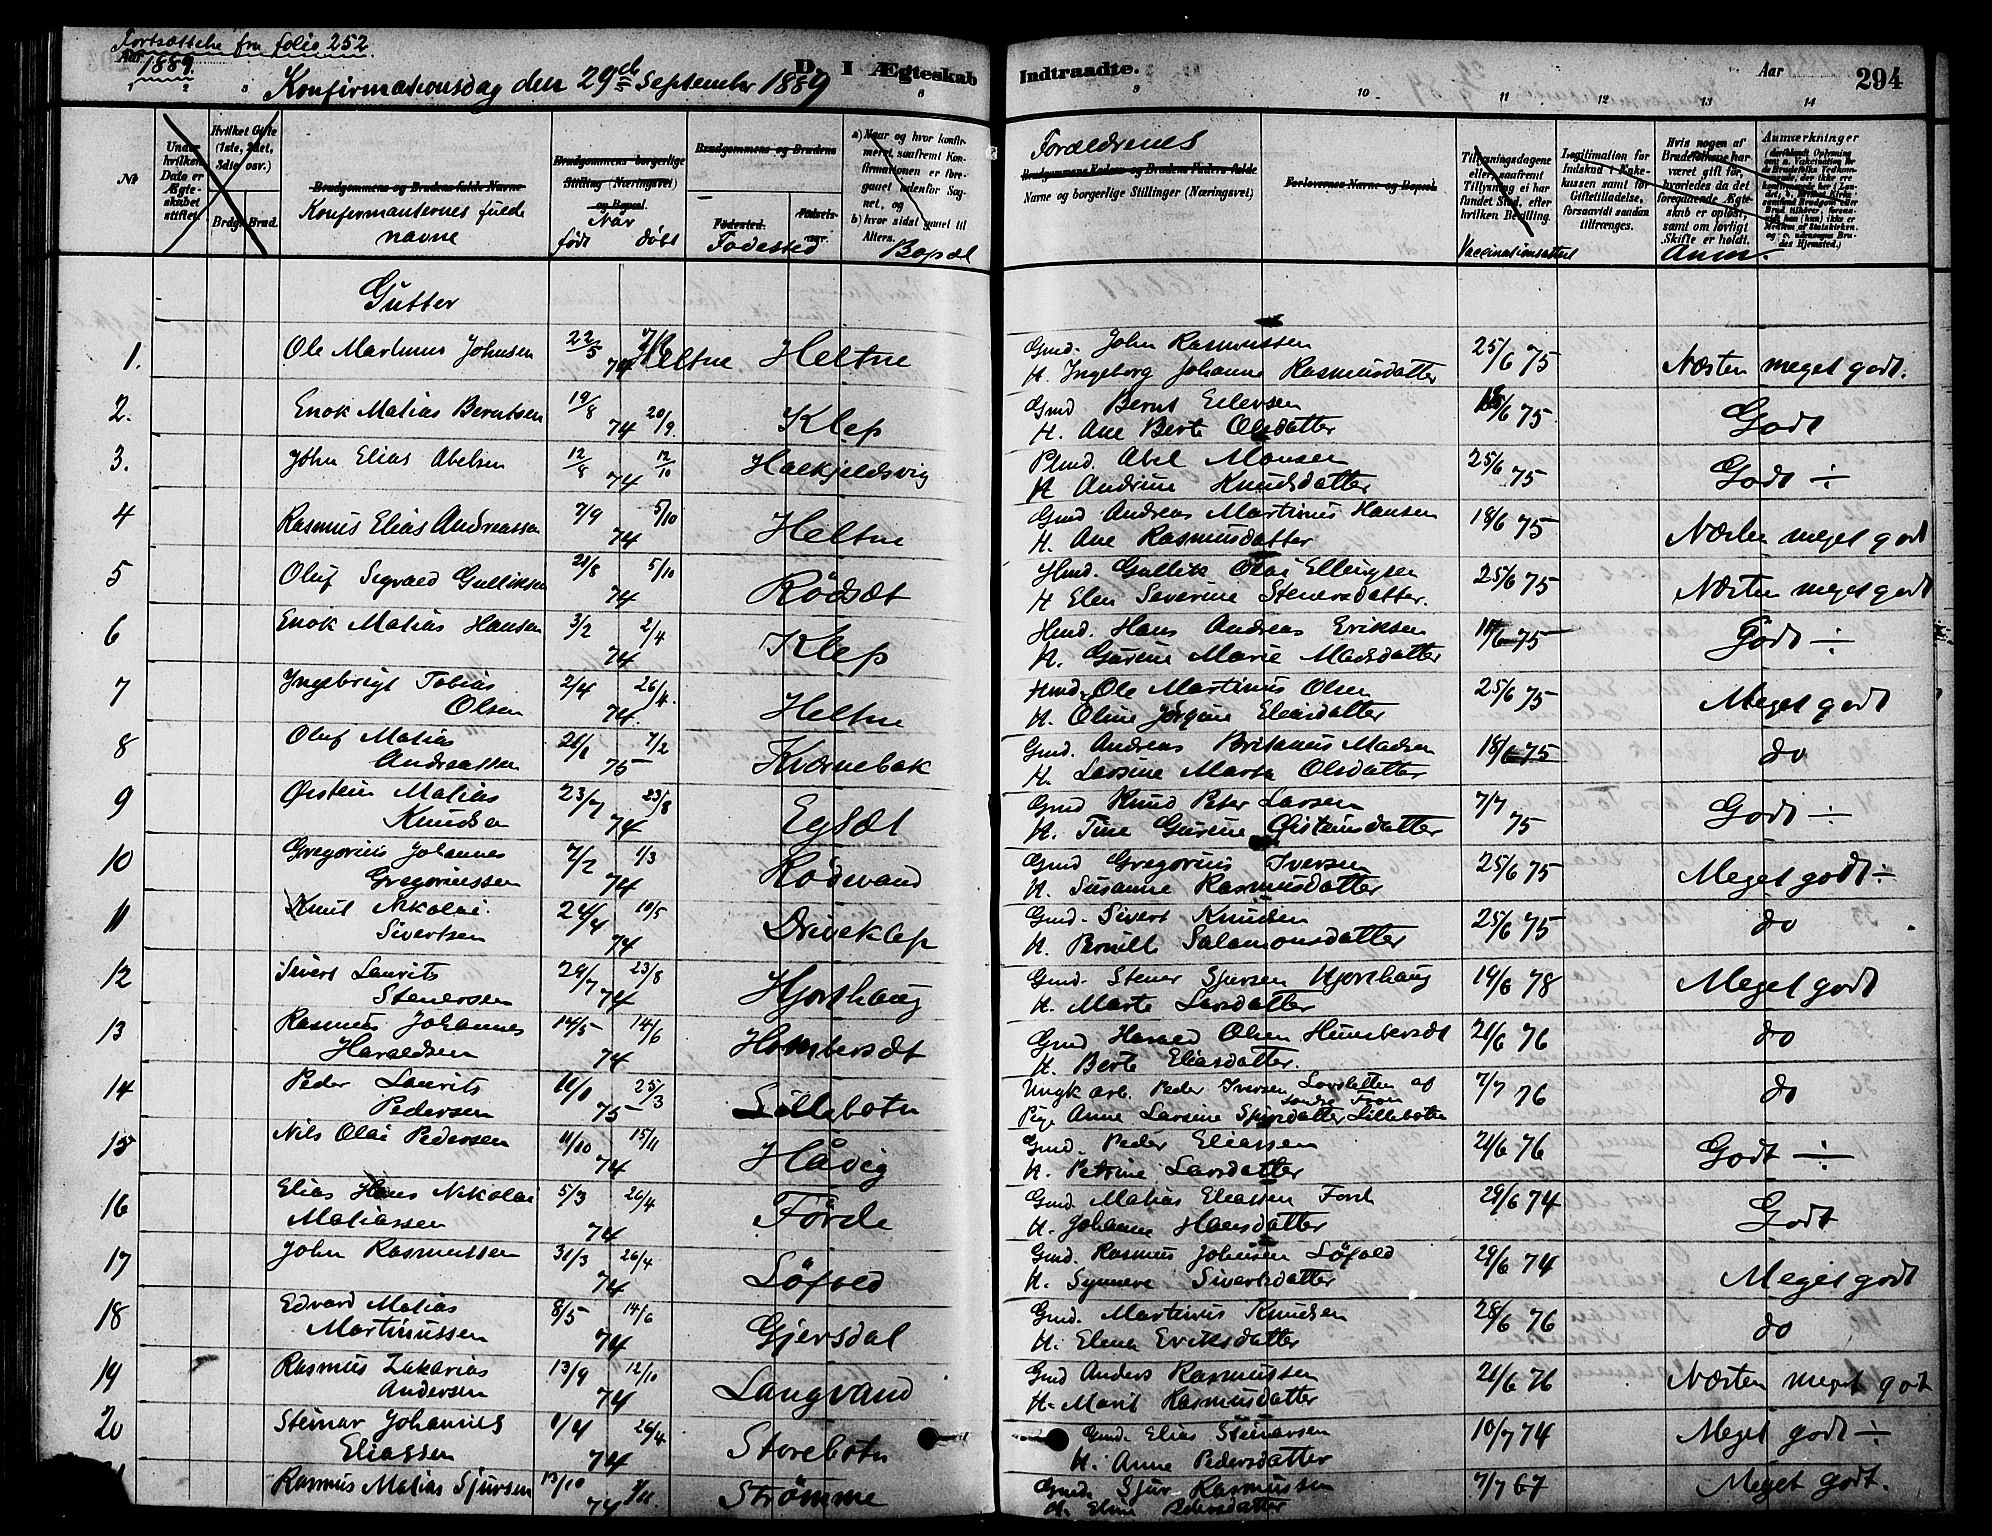 Fortsættelse fra folio 252.
Aar 1889.
Konfirmationsdag den 29de September 1889
D. I Ægteskab Indtraadte.
Aar 294
8 9 10 11 12 13 14
No
Under hvilken Dato er Ægteskabet stiftet.
Hvilket Gifte (1ste, 2det, 3die osv.)
Brudg. Brud.
Brudgommens og Brudens fulde Navne
Konfirmanternes fulde navne
Brudgommens borgerlige Stilling (Næringsvei) og Bopæl.
Når
født døbt
Brudgommens og Brudens
Fødested. Fødselsaar.
Fødested
a) Naar og hvor konfirmeret, saafremt Konfirmationen er foregaaet udenfor Sognet, og
b) hvor sidst gaaet til Alters.
Bopæl
Forældrenes
Brudgommens Faders og Brudens Faders fulde
Navne og borgerlige Stillinger (Næringsvei)
Forlovernes Navne og Bopæl
Tillysningsdagene eller, saafremt Tillysning ei har fundet Sted, efter hvilken Bevilling.
Vaccinationsattest
Legitimation for Indskud i Enkekassen samt for Giftetilladelse, forsaavidt saadan tiltrænges.
Hvis nogen af Brudefolkene har været gift før, hvorledes da det foregaaende Ægteskab er opløst, samt om lovligt Skifte er holdt.
Anm.
Anmærkninger
Gutter
1. Ole Martinus Johnsen 22/5 74 7/9 Heltne Heltne Gmd. John Rasmussen 25/6 75 Næsten meget godt.
H. Ingeborg Johanne Rasmusdatter
2. Enok Matias Berntsen 19/8 74 20/9 Klep Gmd Bernt Eilersen 18/6 75 Godt
H. Ane Berte Olsdatter
3. John Elias Abelsen 12/8 74 12/10 Halkjeldsvig Plmd. Abel Monsen 25/6 75 Godt ÷
H Andrine Knudsdatter
4 Rasmus Elias Andreassen 7/9 74 5/10 Heltne Gmd Andreas Martinus Hansen 18/6 75 Næsten meget godt
H. Ane Rasmusdatter
5 Oluf Sigvald Gulliksen 21/8 74 5/10 Rødsæt Hmd. Gullik Olai Ellingsen 25/6 75 Næsten meget godt
H Elen Severine Stenersdatter.
6 Enok Matias Hansen 3/2 74 2/4 Klep Hmd. Hans Andreas Eriksen 18/6 75 Godt ÷
H. Gurine Marie Madsdatter
7 Ingebrigt Tobias Olsen 2/4 74 26/4 Heltne Hmd. Ole Martinus Olsen 25/6 75 Meget godt
H. Oline Jørgine Eliasdatter
8 Oluf Matias Andreassen 21/1 75 7/2 Kvernebak Gmd. Andreas Britanus Madsen 18/6 75 do
H. Larsine Marta Olsdatter
9 Øistein Matias Knudsen 23/7 74 23/8 Egsæt Gmd Knud Peter Larsen 7/7 75 Godt ÷
H. Tine Gurine Øistensdatter
10 Gregorius Johannes Gregoriussen 7/2 74 1/3 Rødvand Gmd Gregorius Iversen 25/6 75 Meget godt ÷
H. Susanne Rasmusdatter
11 Knut Nikolai Sivertsen 24/4 74 10/5 Driveklep Gmd. Sivert Knudsen 25/6 75 do
H. Brnill Salamonsdatter
12 Sivert Laurits Stenersen 29/7 74 23/8 Hjorthaug Gmd. Stener Sjursen Hjorthaug 19/6 78 Meget godt
H. Marte Larsdatter
13 Rasmus Johannes Haraldsen 14/5 74 14/6 Humbersæt Gmd Harald Olsen Humbersæt 21/6 76 do
H. Berte Eliasdatter.
14 Peder Laurits Pedersen 11/1 75 25/3 Lillebotn Ungk arb. Peder Iversen Lovsletten af søndre Foon 7/7 76 do
Pige Anne Larsine Sjursdatter Lillebotn
15 Nils Olai Pedersen 11/10 74 15/11 Håvig Gmd. Peder Eliassen 21/6 76 Godt ÷
H. Petrine Larsdatter
16 Elias Hans Nikolai Matiassen 5/3 74 26/4 Førde Gmd Matias Eliassen Førde 29/6 74 Godt
H. Johanne Hansdatter
17 John Rasmussen 31/3 74 26/4 Løfold Gmd. Rasmus Johnsen Løfold 29/6 74 Meget godt
H. Synneve Sivertsdatter
18 Edvard Matias Martinussen 8/5 74 14/6 Gjersdal Gmd. Martinus Knudsen 28/6 76 do
H. Elena Eriksdatter
19 Rasmus Zakarias Andersen 13/9 74 12/10 Langvand Gmd Anders Rasmussen 21/6 76 Næsten meget godt
H. Marit Rasmusdatter
20 Steinar Johannes Eliassen 1/4 74 26/4 Storebotn Gmd. Elias Steinarsen 10/7 74 Meget godt ÷
H. Anne Pedersdatter
Rasmus Matias Sjursen 13/10 74 1/11 Strømme Gmd. Sjur Rasmussen 7/7 67 Meget godt.
H. Eline Pedersdatter